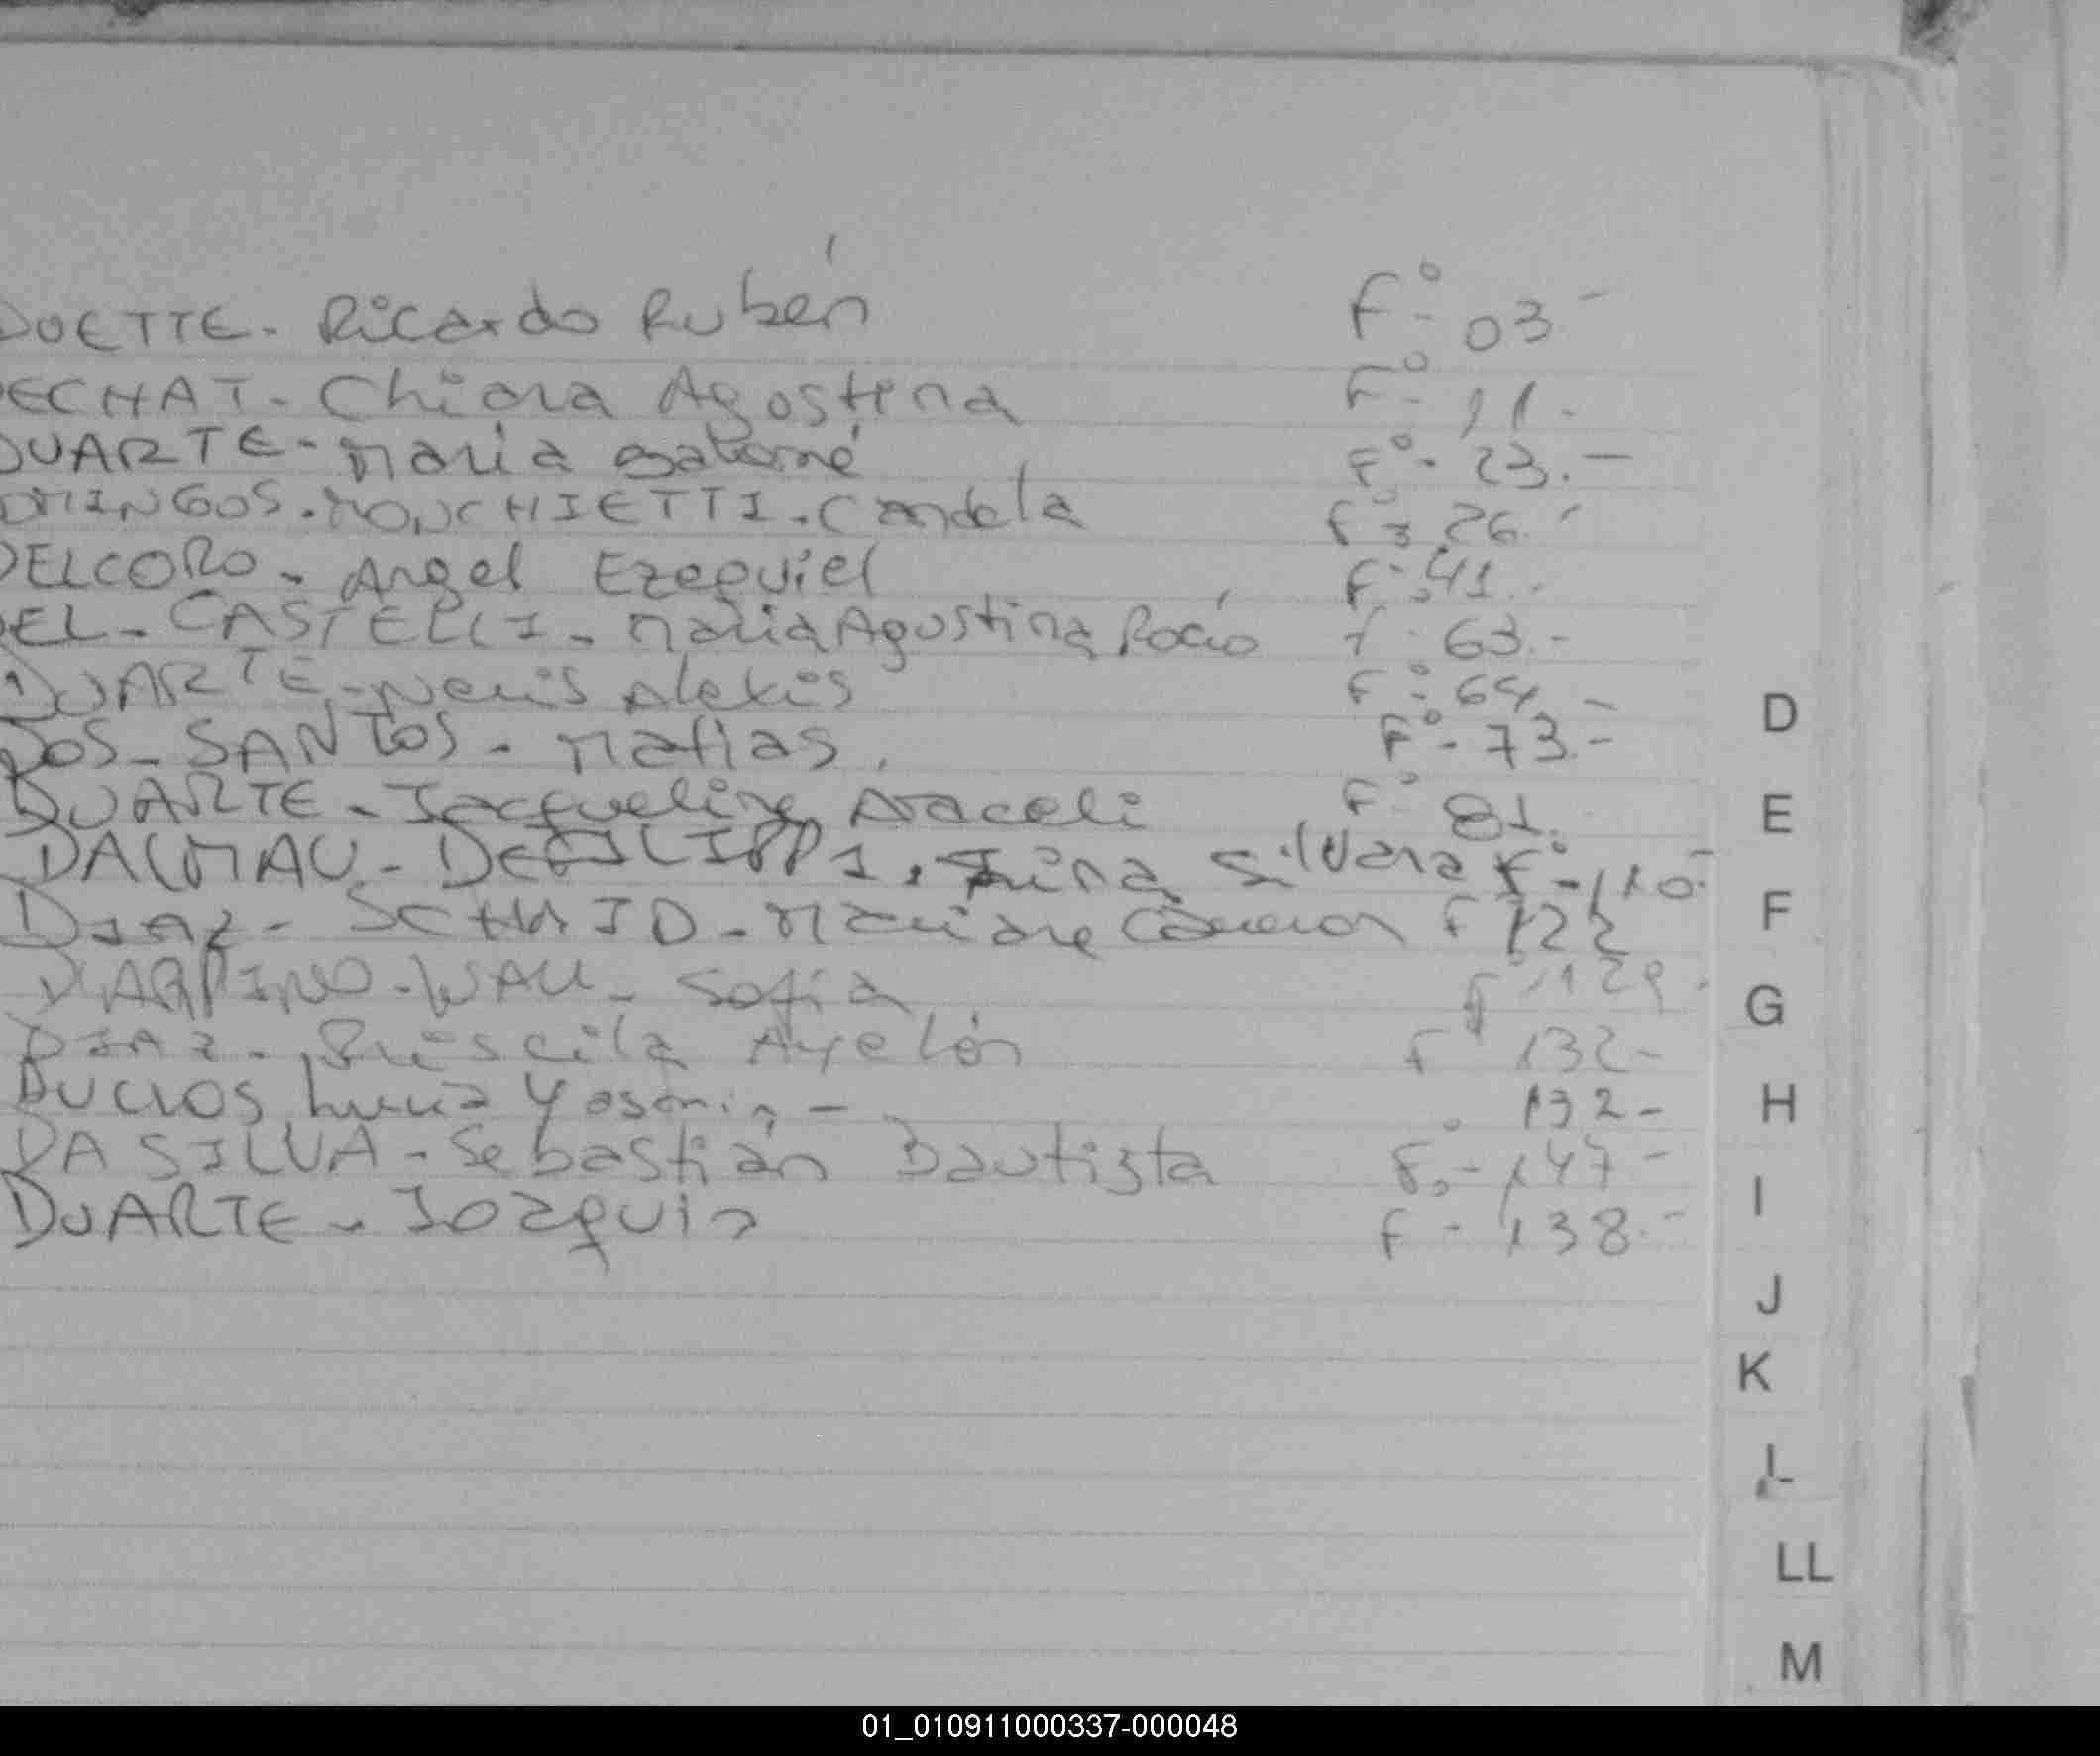 DOETTE - Ricardo Rubén F° 03 -
DECHAT - Chiara Agostina F° 11.
DUARTE - Maria Salomé F° - 23. -
OMINGOS - MONCHIETTI - Candela F° 26. -
DELCORO - Angel Ezequiel F° 41. -
DEL - CASTELLI - Maria Agustina Rocío F 63. -
DUARTE - Neris Alexis F° 64. -
DOS - SANTOS - Matias. F° - 73. -
DUARTE - Jacqueline Araceli F° 81.
DALMAU - DEFILIPPI. Silvana F° - 110.-
DIAZ - SCHMID - F 122
D'ARPINO - WALL - Sofia F° 129.
DIAZ - Priscila Ayelén F° 132 -
DUCLOS Yasmin - 132 -
DA SILVA - Sebastián Bautista F° - 147 -
DUARTE - Joaquin F - 138. -
D
E
F
G
H
I
J
K
L
LL
M
01_010911000337-000048